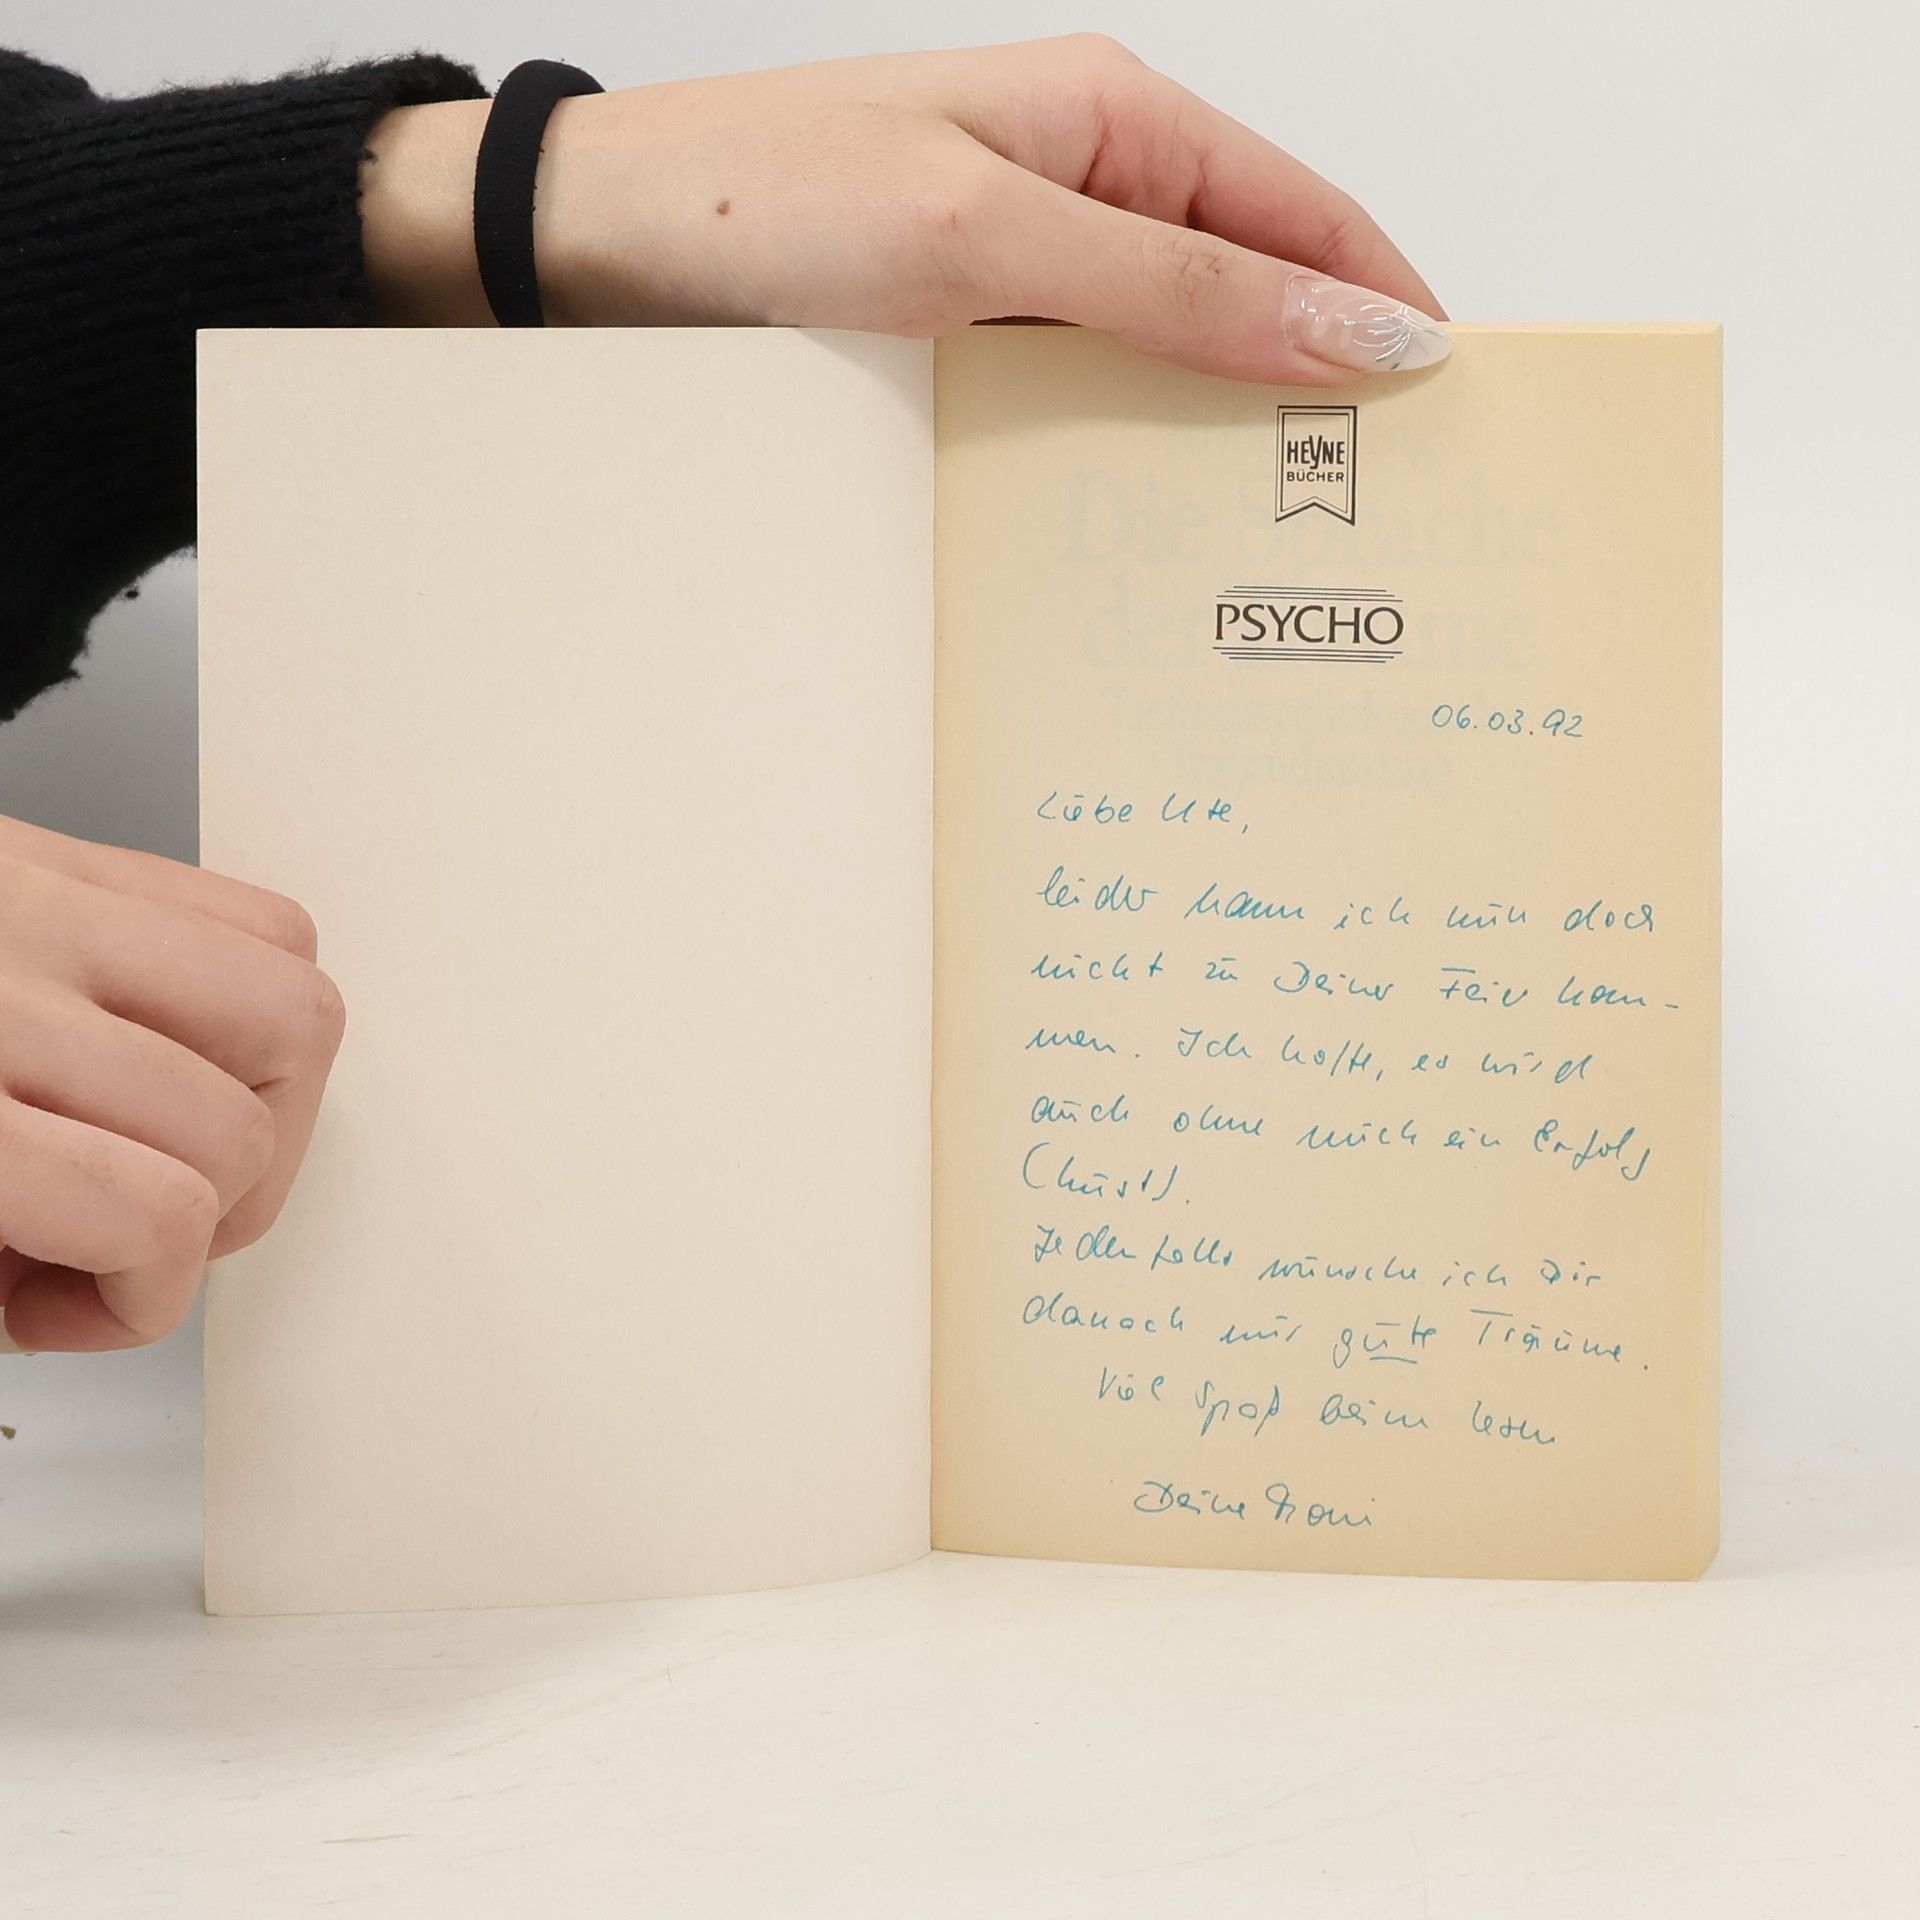 HEYNE
BÜCHER
PSYCHO
06.03.92
Liebe Ute,
leider kann ich nun doch
nicht zu Deiner Feier kom-
men. Ich hoffe, es wird
auch ohne mich ein Erfolg
(hüst).
Jedenfalls wünsche ich Dir
danach nur gute Träume.
Viel Spaß beim Lesen
Deine Moni